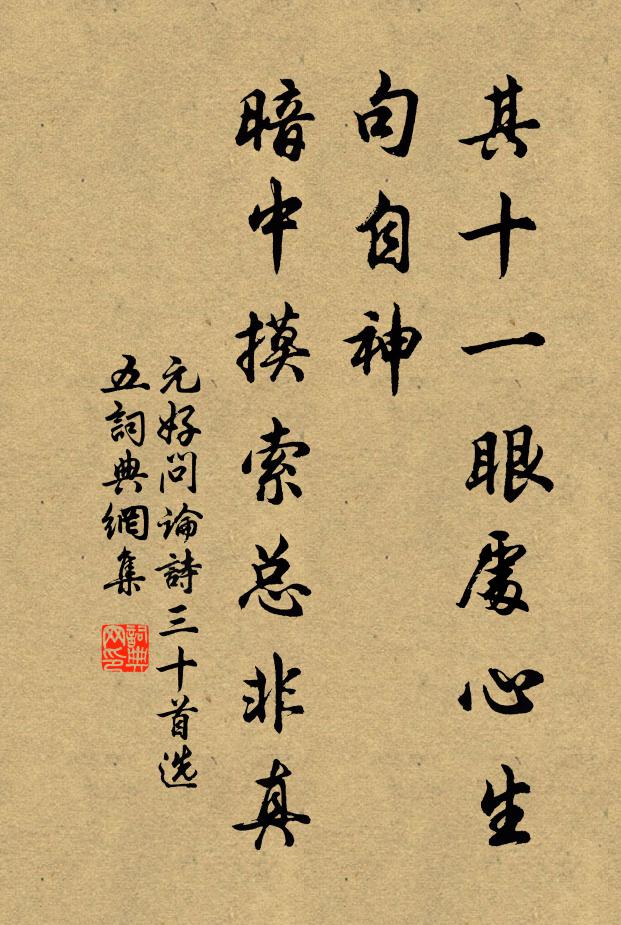 其十一眼處心生
句自神
暗中摸索总非真
元好问论詩三十首选
五詞典網集
詞典
网印